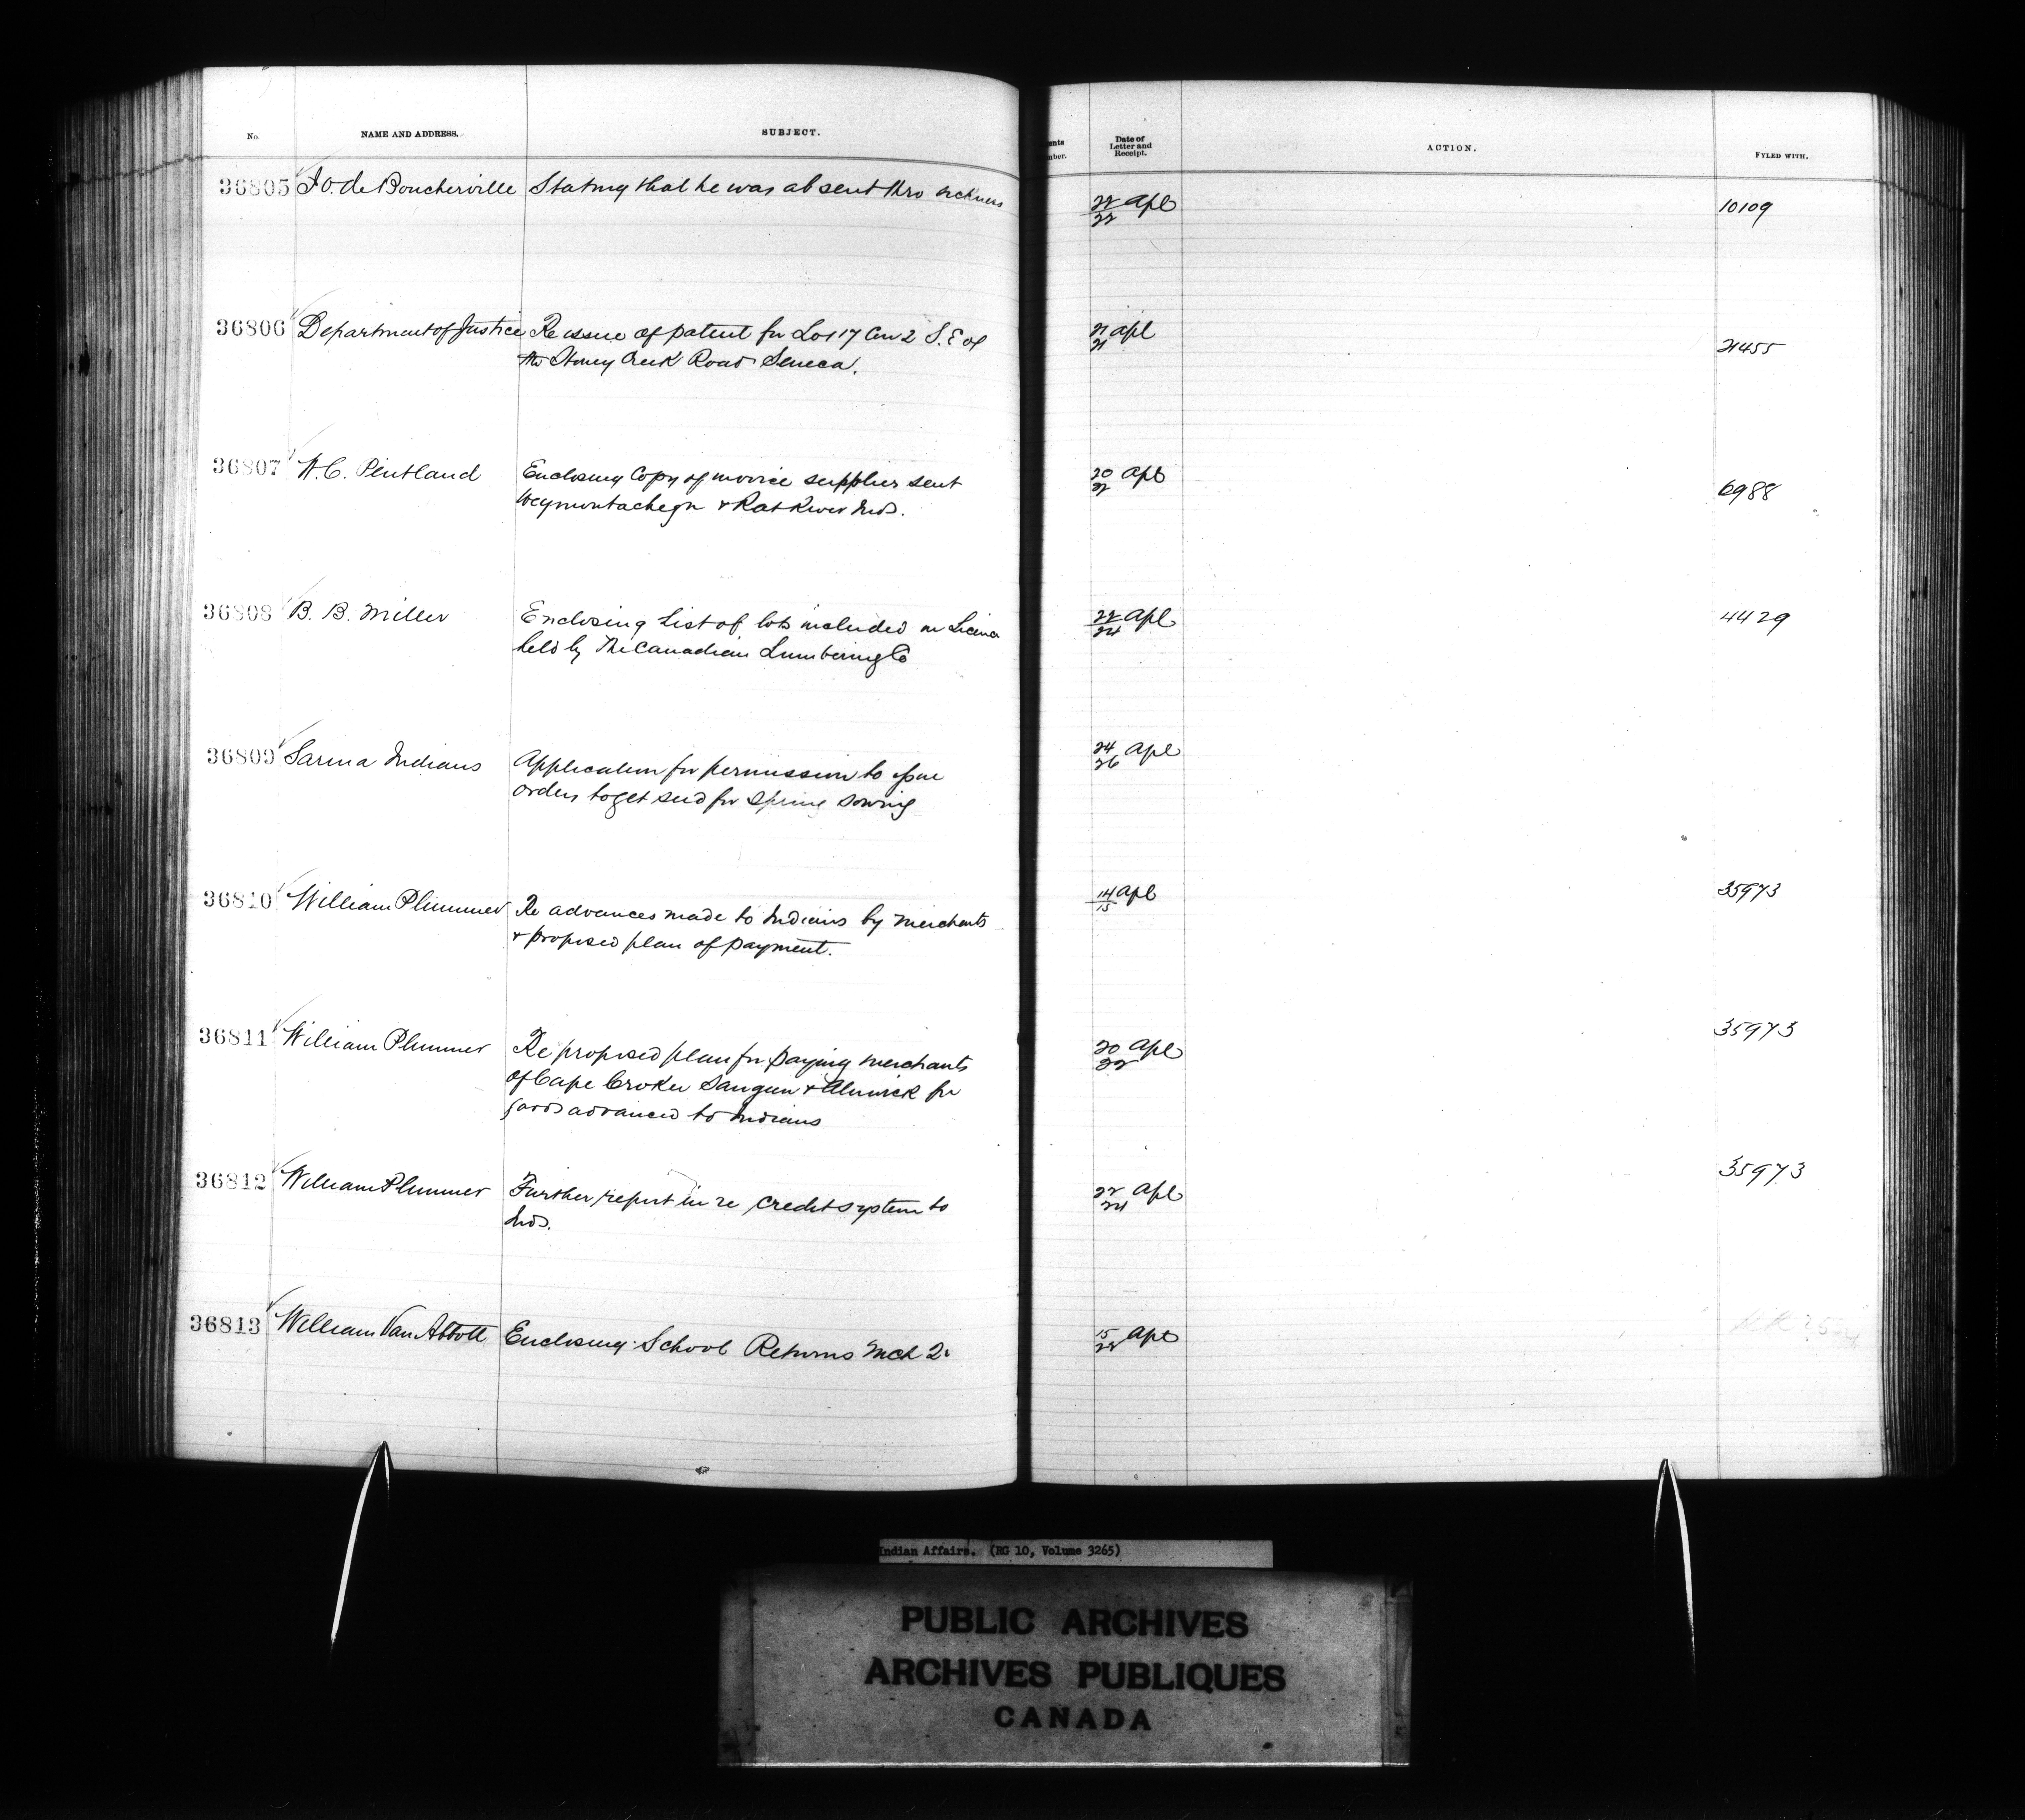 No. NAME AND ADDRESS. SUBJECT. Date of Letter and Receipt. ACTION. FYLED WITH.
36805 J O. de Boucherville Stating that he was absent thro sickness 22/22 Apl 10109
36806 Department of Justice Re issue of patent for Lot 17 Con 2 S. E of 21/21 Apl 21455
the Stoney Creek Road Seneca.
36807 W. C. Pentland Enclosing Copy of invoice supplies sent 20/22 Apl 6988
Weymontachegn & Rat River Inds.
36808 B. B. Miller Enclosing List of lots included in License 22/24 Apl 4429
held by The Canadian Lumbering Co
36809 Sarnia Indians Application for permission to issue 24/26 Apl
orders to get seed for Spring sowing
36810 William Plummer Re advances made to Indians by merchants 14/15 Apl 35973
& proposed plan of payment.
36811 William Plummer Re proposed plan for paying merchants 20/22 Apl 35973
of Cape Croker Saugeen & Alnwick for
goods advanced to Indians
36812 William Plummer Further report in re credit system to 22/24 Apl 35973
Inds.
36813 William Van Abbott Enclosing School Returns Mch Qr 15/22 Apl
Indian Affairs. (RG 10, Volume 3265)
PUBLIC ARCHIVES
ARCHIVES PUBLIQUES
CANADA